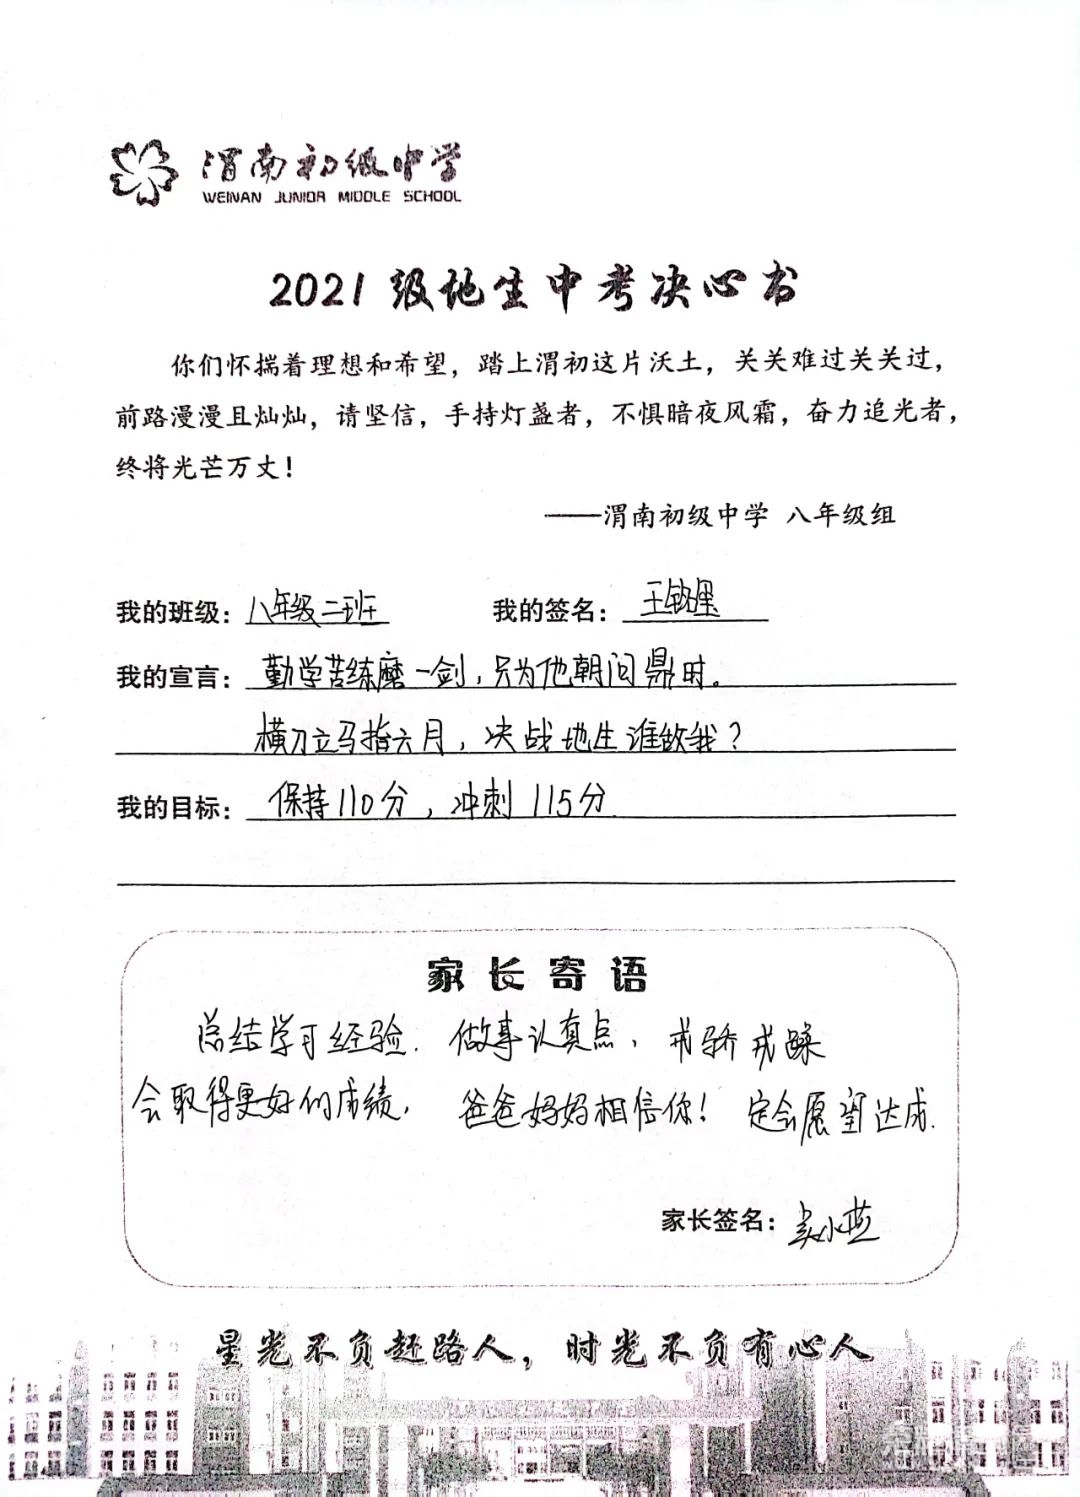 渭南初级中学
WEINAN JUNIOR MIDDLE SCHOOL
2021级地生中考决心书
你们怀揣着理想和希望，踏上渭初这片沃土，关关难过关关过，
前路漫漫且灿灿，请坚信，手持灯盏者，不惧暗夜风霜，奋力追光者，
终将光芒万丈！
——渭南初级中学 八年级组
我的班级：八年级二班 我的签名：王铭墨
我的宣言：勤学苦练磨一剑，只为他朝问鼎时。
横刀立马指六月，决战地生谁敌我？
我的目标：保持110分，冲刺115分.
家长寄语
总结学习经验. 做事认真点，戒骄戒躁
会取得更好的成绩， 爸爸妈妈相信你！ 定会愿望达成.
家长签名：吴小燕
星光不负赶路人，时光不负有心人